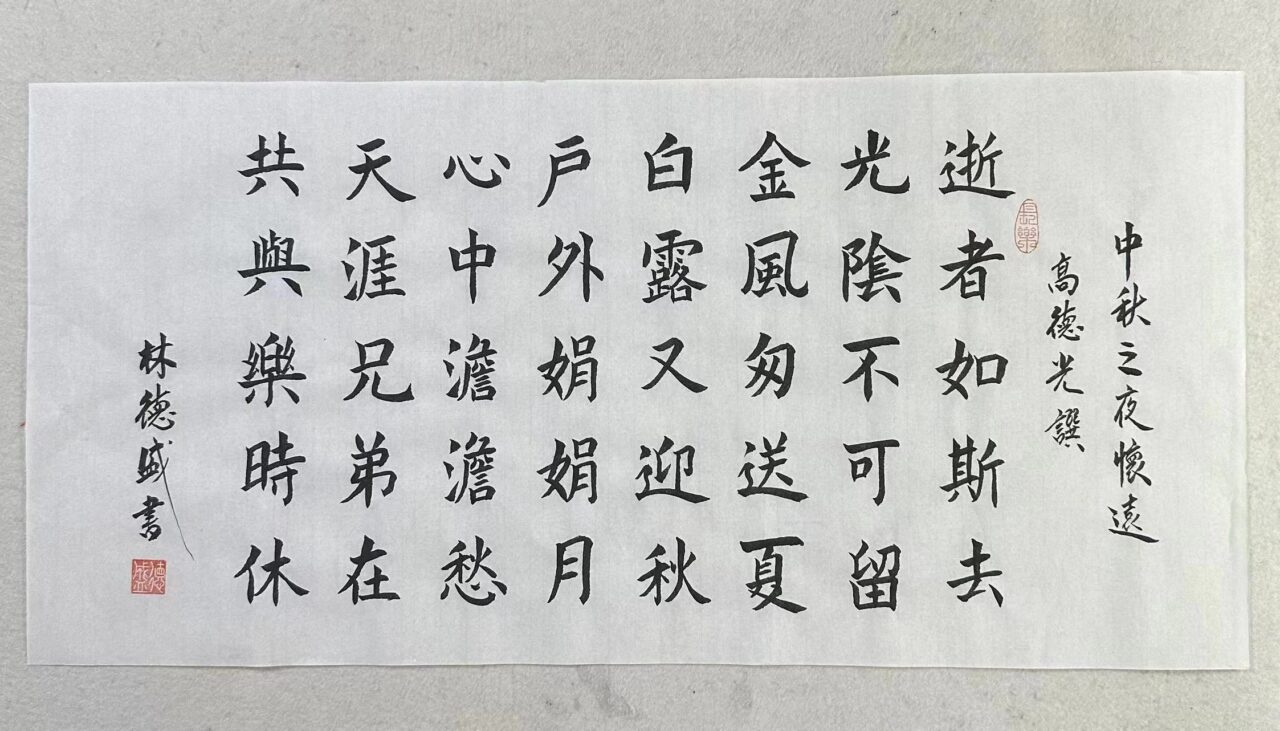 中秋之夜懷遠
高德光譔
長樂
逝者如斯去
光陰不可留
金風匆送夏
白露又迎秋
戶外娟娟月
心中澹澹愁
天涯兄弟在
共與樂時休
林德盛書
德盛